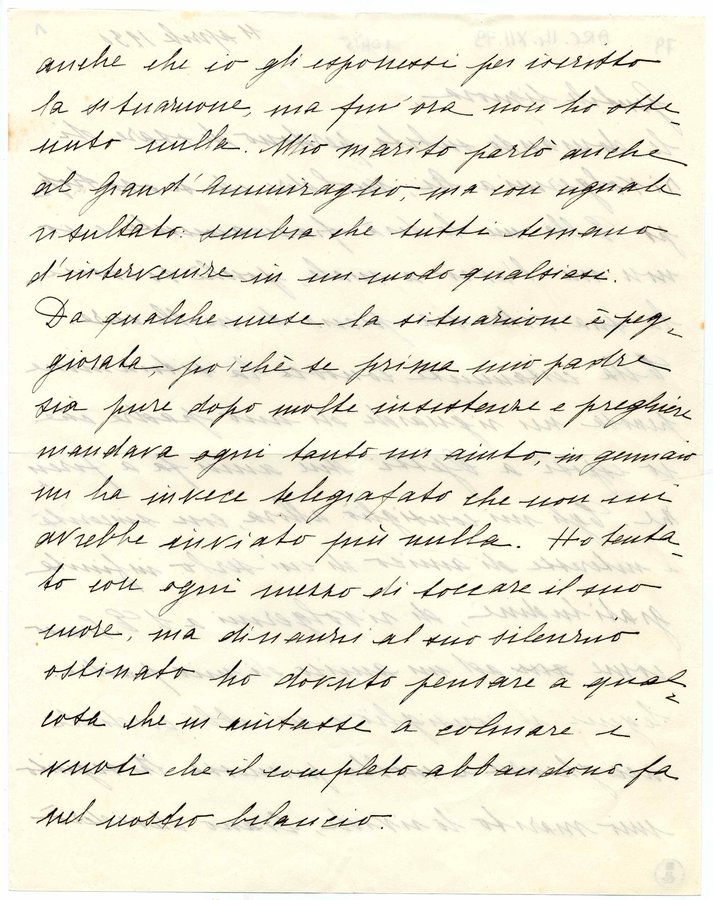 anche che io gli esponessi per iscritto
la situazione, ma fin'ora non ho otte-
nuto nulla. Mio marito parlò anche
al Grand'Ammiraglio, ma con uguale
risultato: sembra che tutti temano
d'intervenire in un modo qualsiasi.
Da qualche mese la situazione è peg-
giorata, poichè se prima mio padre
sia pure dopo molte insistenze e preghiere
mandava ogni tanto un aiuto, in gennaio
mi ha invece telegrafato che non mi
avrebbe inviato più nulla. Ho tenta-
to con ogni mezzo di toccare il suo
cuore, ma dinanzi al suo silenzio
ostinato ho dovuto pensare a qual-
cosa che m'aiutasse a colmare i
vuoti che il completo abbandono fa
nel nostro bilancio.